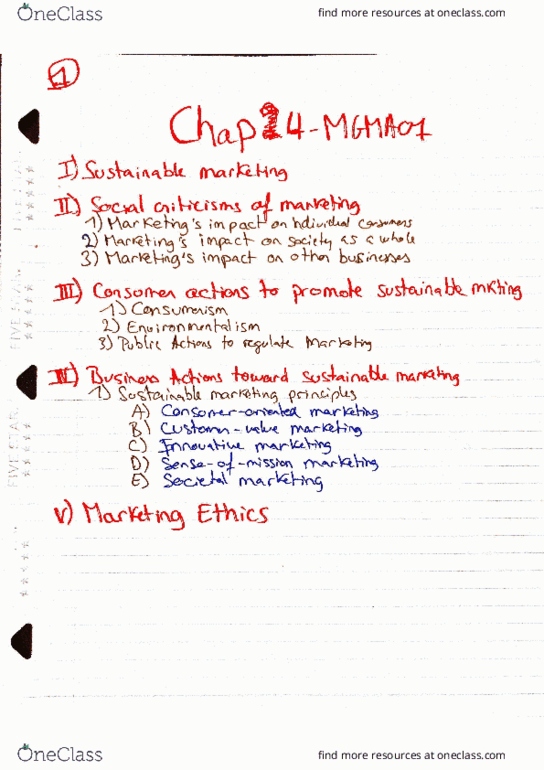 OneClass
find more resources at oneclass.com
1
Chap 14-MGMA01
I) Sustainable marketing
II) Social criticisms of marketing
1) Marketing's impact on individual consumers
2) Marketing's impact on society as a whole
3) Marketing's impact on other businesses
III) Consumer actions to promote sustainable mkting
1) Consumerism
2) Environmentalism
3) Public Actions to regulate Marketing
IV) Business Actions toward sustainable marketing
1) Sustainable marketing principles
A) Consumer-oriented marketing
B) Customer-value marketing
C) Innovative marketing
D) Sense-of-mission marketing
E) Societal marketing
V) Marketing Ethics
OneClass
find more resources at oneclass.com